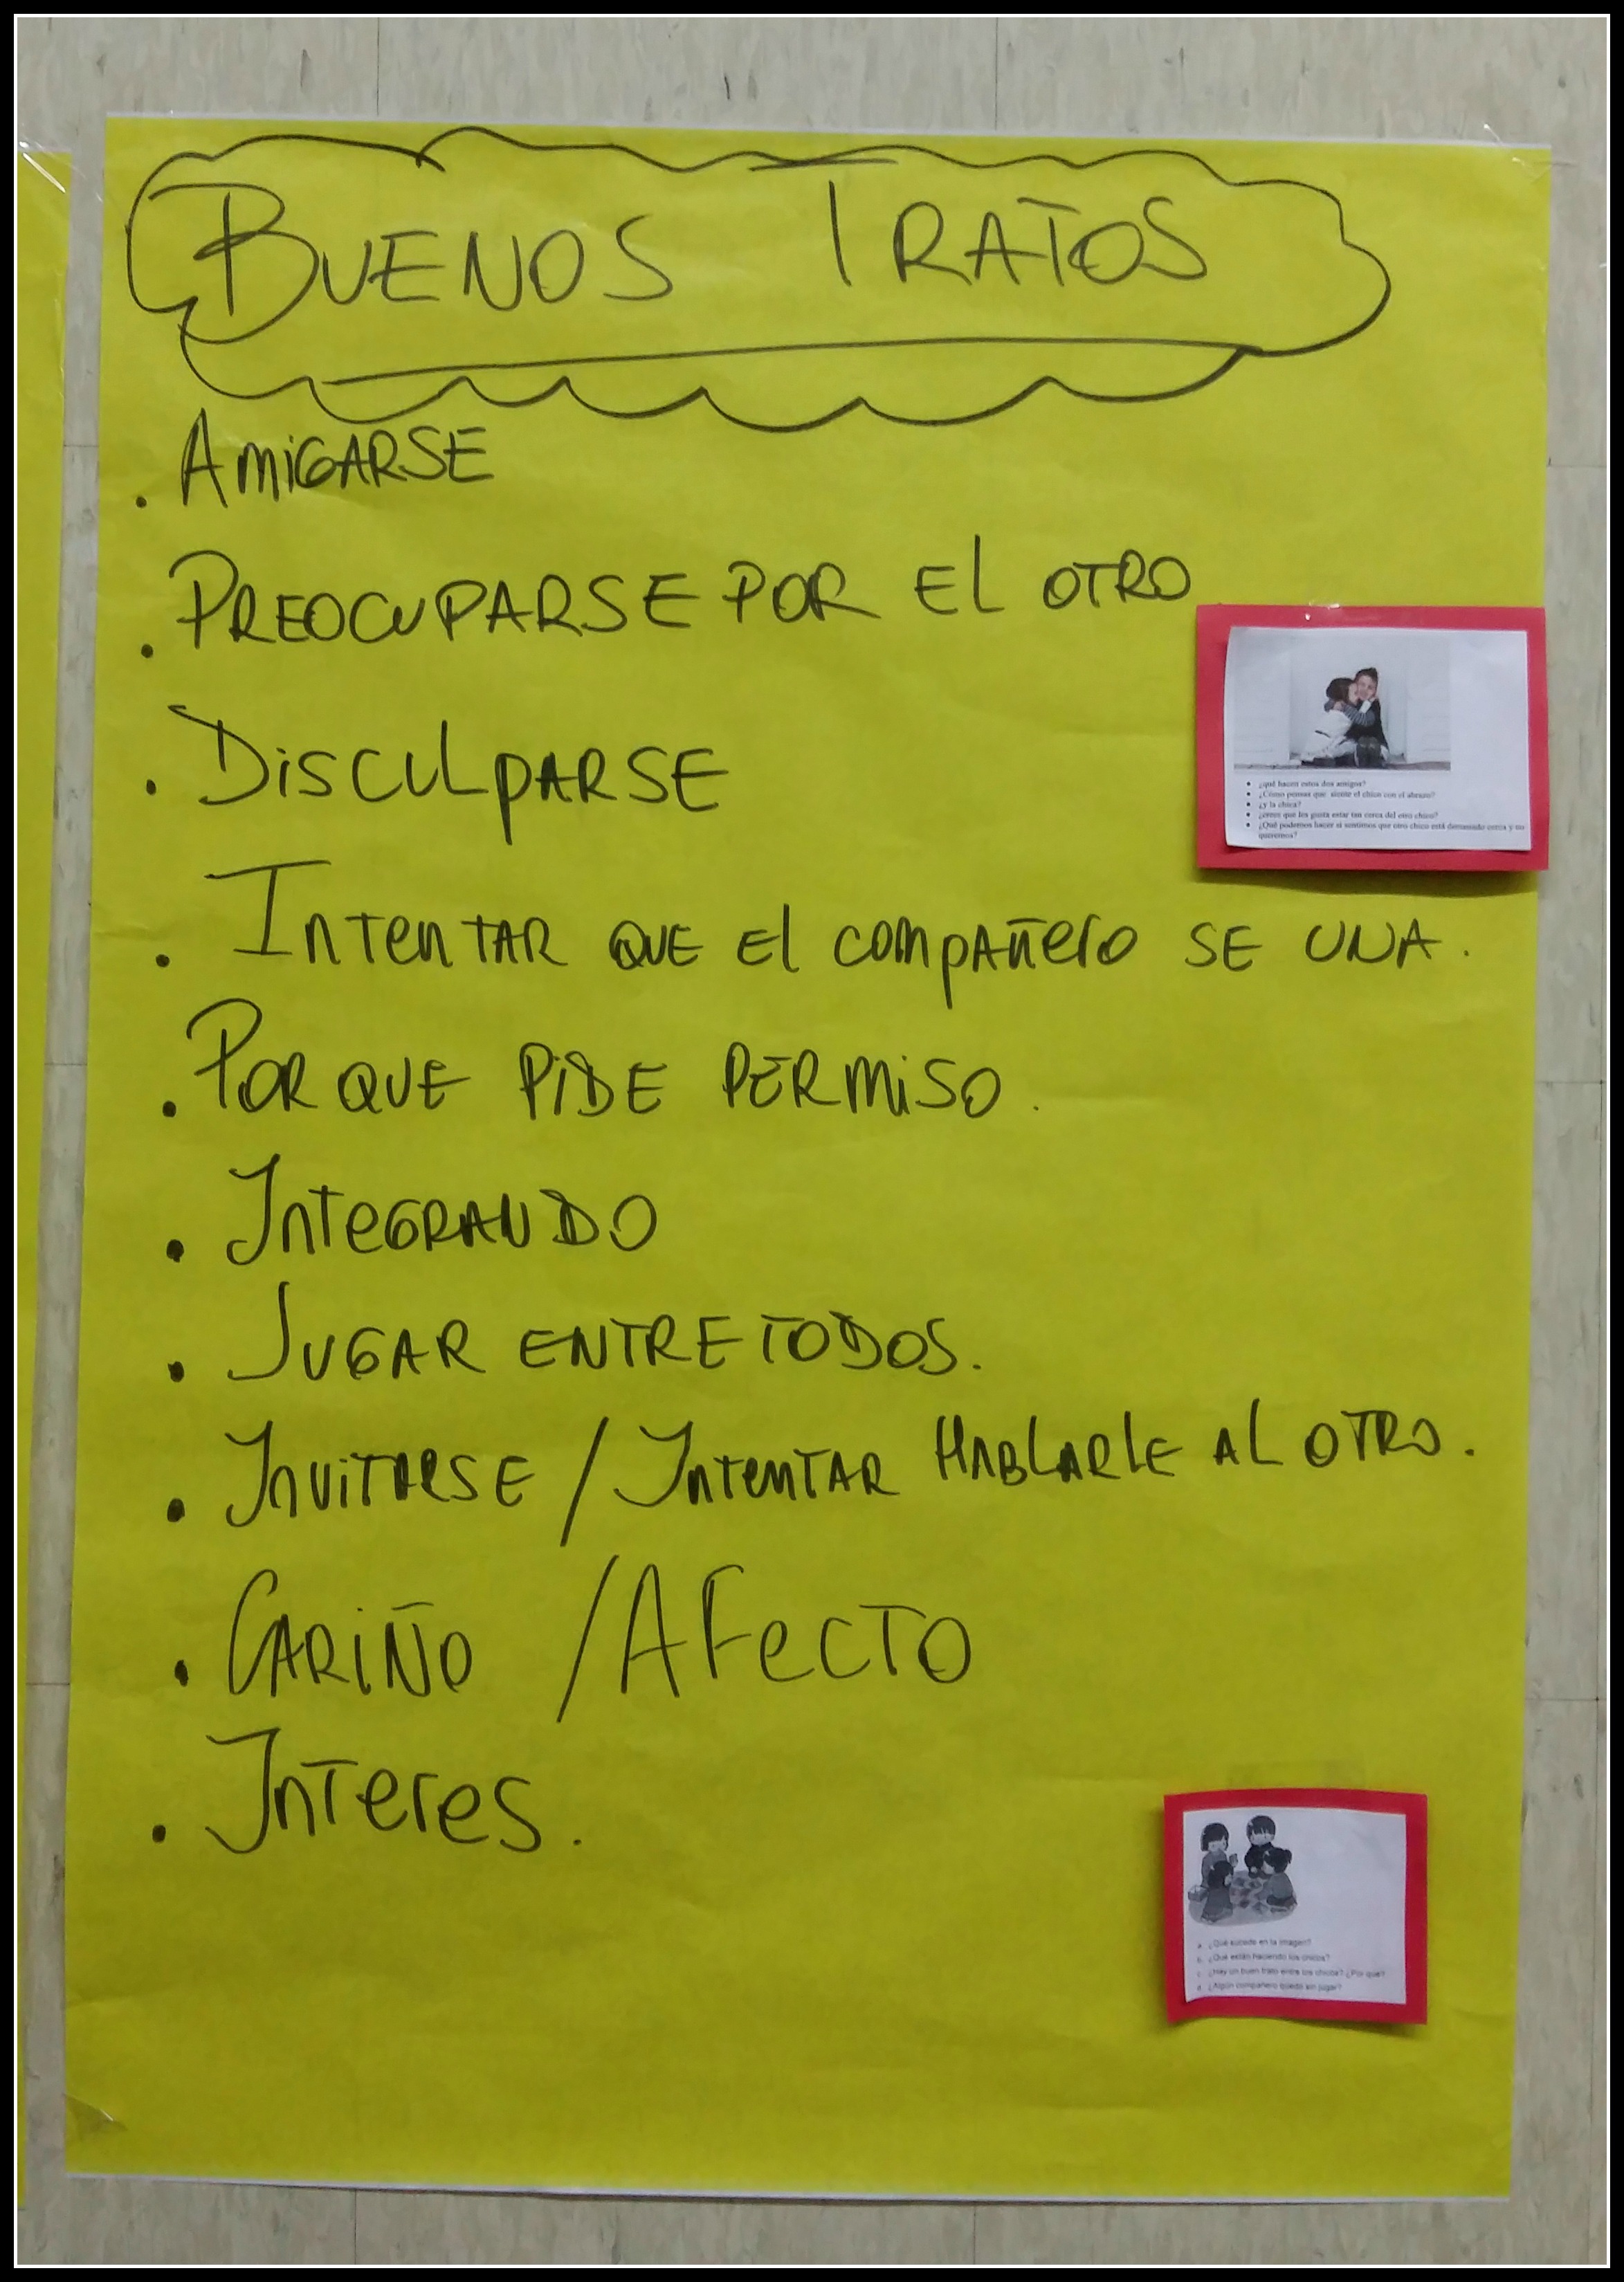 BUENOS TRATOS
. AMIGARSE
. PREOCUPARSE POR EL OTRO
. DISCULPARSE
. INTENTAR QUE El compAñero SE UNA.
. POR QUE PIDE PERMISO.
. INTEGRANDO
. JUGAR ENTRE TODOS.
. INVITARSE / INTENTAR HABLARLE AL OTRO.
. CARIÑO / AFECTO
. INTERES.
• ¿qué hacen estos dos amigos?
• ¿Cómo pensas que siente el chico con el abrazo?
• ¿y la chica?
• ¿crees que les gusta estar tan cerca del otro chico?
• ¿Qué podemos hacer si sentimos que otro chico está demasiado cerca y no
queremos?
a. ¿Qué sucede en la imagen?
b. ¿Qué están haciendo los chicos?
c. ¿Hay un buen trato entre los chicos? ¿Por qué?
d. ¿Algún compañero quedó sin jugar?